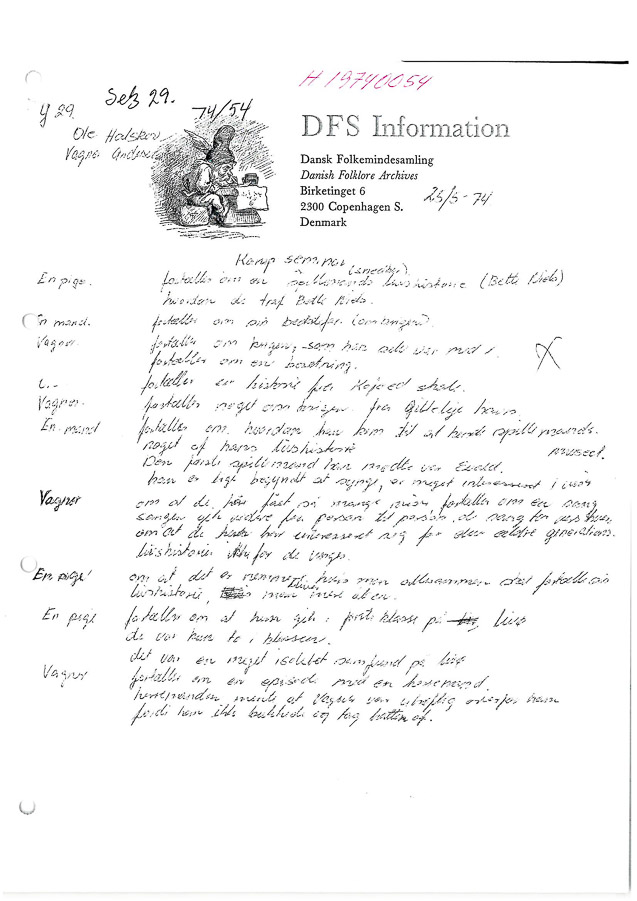 H 19740054
Y 29. Seb 29. 74/54
Ole Halskov
Vagner Andersen
DFS Information
Dansk Folkemindesamling
Danish Folklore Archives
Birketinget 6
2300 Copenhagen S.
Denmark
25/5-74
Karup seminar
En pige. fortæller om en spillemands livshistorie (Bette Niels)
hvordan de traf Bette Niels.
En mand. fortæller om sin bedstefar
Vagner fortæller om krigen, som han selv var med i. X
fortæller om en beretning.
fortæller en historie fra Kofoed skole.
Vagner. fortæller noget om krigen fra Gilleleje havn
En mand fortæller om, hvordan han kom til at kende spillemands
noget af hans livshistorie musect.
Den første spillemand han mødte var Evald.
han er lige begyndt at synge, er meget interesseret i
Vagner om at de har fået så mange fortæller om en sang
sangen gik videre fra person til person, de sang
om at de havde interesseret sig for den ældre generations
livshistorie for de unge.
En pige om at det er nemmere, hvis man allesammen skal fortælle sin
livshistorie, men alene.
En pige fortæller om at hun gik i første klasse på Livø
de var kun to i klassen.
det var en meget isoleret samfund på Livø
Vagner fortæller om en episode med en herremand.
herremanden mente at Vagner var uhøflig overfor ham
fordi han ikke bukkede og tog hatten af.